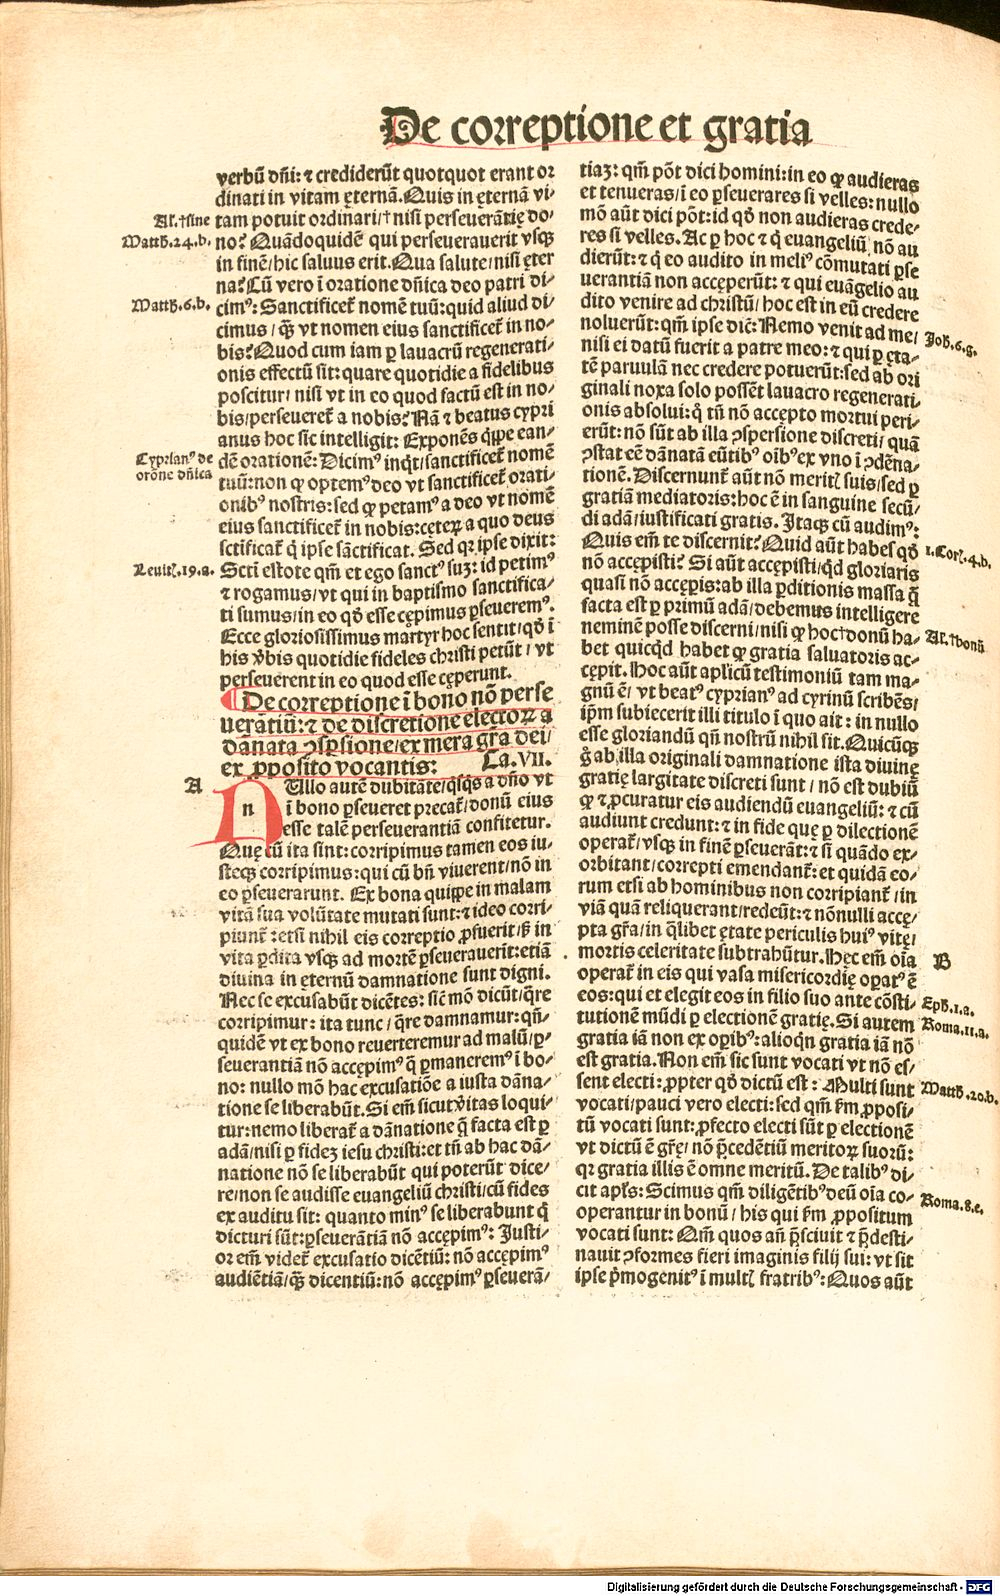 De correptione et gratia
verbū dñi: ⁊ crediderūt quotquot erant or
dinati in vitam ęternā. Quis in ęternā vi⸗
Al. †sine
tam potuit ordinari/† nisi perseuerātię do⸗
Matth. 24. b.
no? Quādoquidē qui perseuerauerit vsqꝫ
in finē/hic saluus erit. Qua salute/nisi ęter
na? Cū vero ī oratione dñica deo patri di⸗
Matth. 6. b.
cimꝰ: Sanctificet᷑ nomē tuū: quid aliud di⸗
cimus/ꝗ̄ꝫ vt nomen eius sanctificet᷑ in no⸗
bis? Quod cum iam ꝑ lauacrū regenerati⸗
onis effectū sit: quare quotidie a fidelibus
poscitur/ nisi vt in eo quod factū est in no⸗
bis/perseueret᷑ a nobis? Nā ⁊ beatus cypri
anus hoc sic intelligit: Exponēs q̇ppe ean⸗
Cyprianꝰ de
orōne dñica
dē orationē: Dicimꝰ inqt/sanctificet᷑ nomē
tuū: non ꝙ optemꝰ deo vt sanctificet᷑ orati⸗
onibꝰ nostris: sed ꝙ petamꝰ a deo vt nomē
eius sanctificet᷑ in nobis: ceteꝝ a quo deus
sctīficat᷑ q̇ ipse sāctificat. Sed qꝛ ipse dixit:
Leuit. 19. a.
Sctī estote qm̄ et ego sanctꝰ suꝫ: id petimꝰ
⁊ rogamus/vt qui in baptismo sanctifica⸗
ti sumus/in eo qd̄ esse cępimus ꝑseueremꝰ.
Ecce gloriosissimus martyr hoc sentit/qd̄ ī
his v̓bis quotidie fideles christi petūt/ vt
perseuerent in eo quod esse cęperunt.
¶ De correptione ī bono nō perse
uerātiū: ⁊ de discretione electoꝝ a
dānata ꝯspsione/ex mera gr̄a dei/
ex ꝓposito vocantis: Ca. VII.
A
n Ullo autē dubitāte/qsqs a dn̄o vt
ī bono ꝑseueret precat᷑/donū eius
esse talē perseuerantiā confitetur.
Quę cū ita sint: corripimus tamen eos iu⸗
steqꝫ corripimus: qui cū bn̄ viuerent/nō in
eo ꝑseuerarunt. Ex bona quippe in malam
vitā sua volūtate mutati sunt: ⁊ ideo corri⸗
piunt᷑: etsi nihil eis correptio ꝓfuerit/ß in
vita ꝑdita vsqꝫ ad mortē ꝑseuerauerīt: etiā
diuina in ęternū damnatione sunt digni.
Nec se excusabūt dicētes: sic mō dicūt/q̄re
corripimur: ita tunc/q̄re damnamur: qn̄⸗
quidē vt ex bono reuerteremur ad malū/ꝑ⸗
seuerantiā nō accępimꝰ q̄ ꝑmaneremꝰ ī bo⸗
no: nullo mō hac excusatiōe a iusta dāna⸗
tione se liberabūt. Si em̄ sicut v̓itas loqui⸗
tur: nemo liberat᷑ a dānatione q̄ facta est ꝑ
adā/nisi ꝑ fideꝫ iesu christi: et tn̄ ab hac dā⸗
natione nō se liberabūt qui poterūt dice⸗
re/non se audisse euangeliū christi/cū fides
ex auditu sit: quanto minꝰ se liberabunt q̇
dicturi sūt: ꝑseuerātiā nō accępimꝰ: Justi⸗
or em̄ videt᷑ excusatio dicētiū: nō accępimꝰ
audiētiā/ꝗ̄ꝫ dicentiū: nō accępimꝰ ꝑseuerā⸗
tiaꝫ: qm̄ pōt dici homini: in eo ꝙ audieras
et tenueras/ī eo ꝑseuerares si velles: nullo
mō aūt dici pōt: id qd̄ non audieras crede⸗
res si velles. Ac ꝑ hoc ⁊ q̇ euangeliū nō au
dierūt: ⁊ q̇ eo audito in meliꝰ cōmutati ꝑse
uerantiā non accęperūt: ⁊ qui euāgelio au
dito venire ad christū/ hoc est in eū credere
noluerūt: qm̄ ipse dic̄: Nemo venit ad me/
Joh. 6. g.
nisi ei datū fuerit a patre meo: ⁊ qui ꝑ ęta⸗
tē paruulā nec credere potuerūt: sed ab ori
ginali noxa solo possēt lauacro regenerati⸗
onis absolui: q̇ tn̄ nō accepto mortui peri⸗
erūt: nō sūt ab illa ꝯspersione discreti/ quā
ꝯstat eē dānatā eūtibꝰ oībꝰ ex vno ī ꝯdēna⸗
tionē. Discernunt᷑ aūt nō meritꝭ suis/sed ꝑ
gratiā mediatoris: hoc ē in sanguine secū⸗
di adā/iustificati gratis. Itaqꝫ cū audimꝰ:
Quis em̄ te discernit? Quid aūt habes qd̄
1. Cor. 4. b.
nō accepisti? Si aūt accepisti/qd gloriaris
quasi nō accępis: ab illa ꝑditionis massa q̄
facta est ꝑ primū adā/debemus intelligere
neminē posse discerni/nisi ꝙ hoc† donū ha⸗
Al. † bonū
bet quicqd habet ꝙ gratia saluatoris ac⸗
cępit. Hoc aūt aplicū testimoniū tam ma⸗
gnū ē/ vt beatꝰ cyprianꝰ ad cyrinū scribēs/
ip̄m subiecerit illi titulo ī quo ait: in nullo
esse gloriandū qn̄ nostrū nihil sit. Quicūqꝫ
g̊ ab illa originali damnatione ista diuinę
gratię largitate discreti sunt/ nō est dubiū
ꝙ ⁊ ꝓcuratur eis audiendū euangeliū: ⁊ cū
audiunt credunt: ⁊ in fide quę ꝑ dilectionē
operat᷑/vsqꝫ in finē ꝑseuerāt: ⁊ si quādo ex⸗
orbitant/correpti emendant᷑: et quidā eo⸗
rum etsi ab hominibus non corripiant᷑/in
viā quā reliquerant/redeūt: ⁊ nōnulli accę⸗
pta gr̄a/in q̄libet ętate periculis huiꝰ vitę/
mortis celeritate subtrahūtur. Hęc em̄ oīa
B
operat᷑ in eis qui vasa misericordię opatꝰ ē
eos: qui et elegit eos in filio suo ante cōsti⸗
Eph. 1. a.
tutionē mūdi ꝑ electionē gratię. Si autem
Roma. 11. a.
gratia iā non ex opibꝰ: alioqn gratia iā nō
est gratia. Non em̄ sic sunt vocati vt nō es⸗
sent electi: ꝓpter qd̄ dictū est: Multi sunt
Matth. 20. b.
vocati/pauci vero electi: sed qm̄ ẜm ꝓposi⸗
tū vocati sunt: ꝓfecto electi sūt ꝑ electionē
vt dictū ē gr̄ę/ nō p̄cedētiū meritoꝝ suorū:
qꝛ gratia illis ē omne meritū. De talibꝰ di⸗
cit apls: Scimus qm̄ diligētibꝰ deū oīa co⸗
Roma. 8. e.
operantur in bonū/ his qui ẜm ꝓpositum
vocati sunt: Qm̄ quos an̄ p̄sciuit ⁊ p̄desti⸗
nauit ꝯformes fieri imaginis filij sui: vt sit
ipse p̓mogenitꝰ ī multꝭ fratribꝰ: Quos aūt
Digitalisierung gefördert durch die Deutsche Forschungsgemeinschaft - DFG